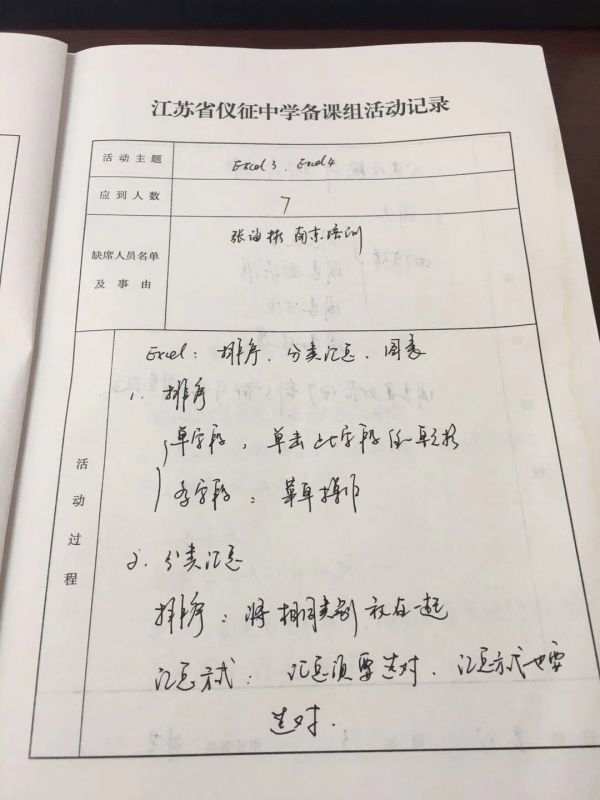 江苏省仪征中学备课组活动记录
活动主题 Excel 3、Excel 4
应到人数 7
缺席人员名单及事由 张海彬 南京培训
活动过程
Excel：排序、分类汇总、图表
1. 排序
单字段，单击此字段任一单元格
多字段：菜单操作
2. 分类汇总
排序：将相同类别放在一起
汇总方式：汇总项要选对，汇总方式也要
选对.